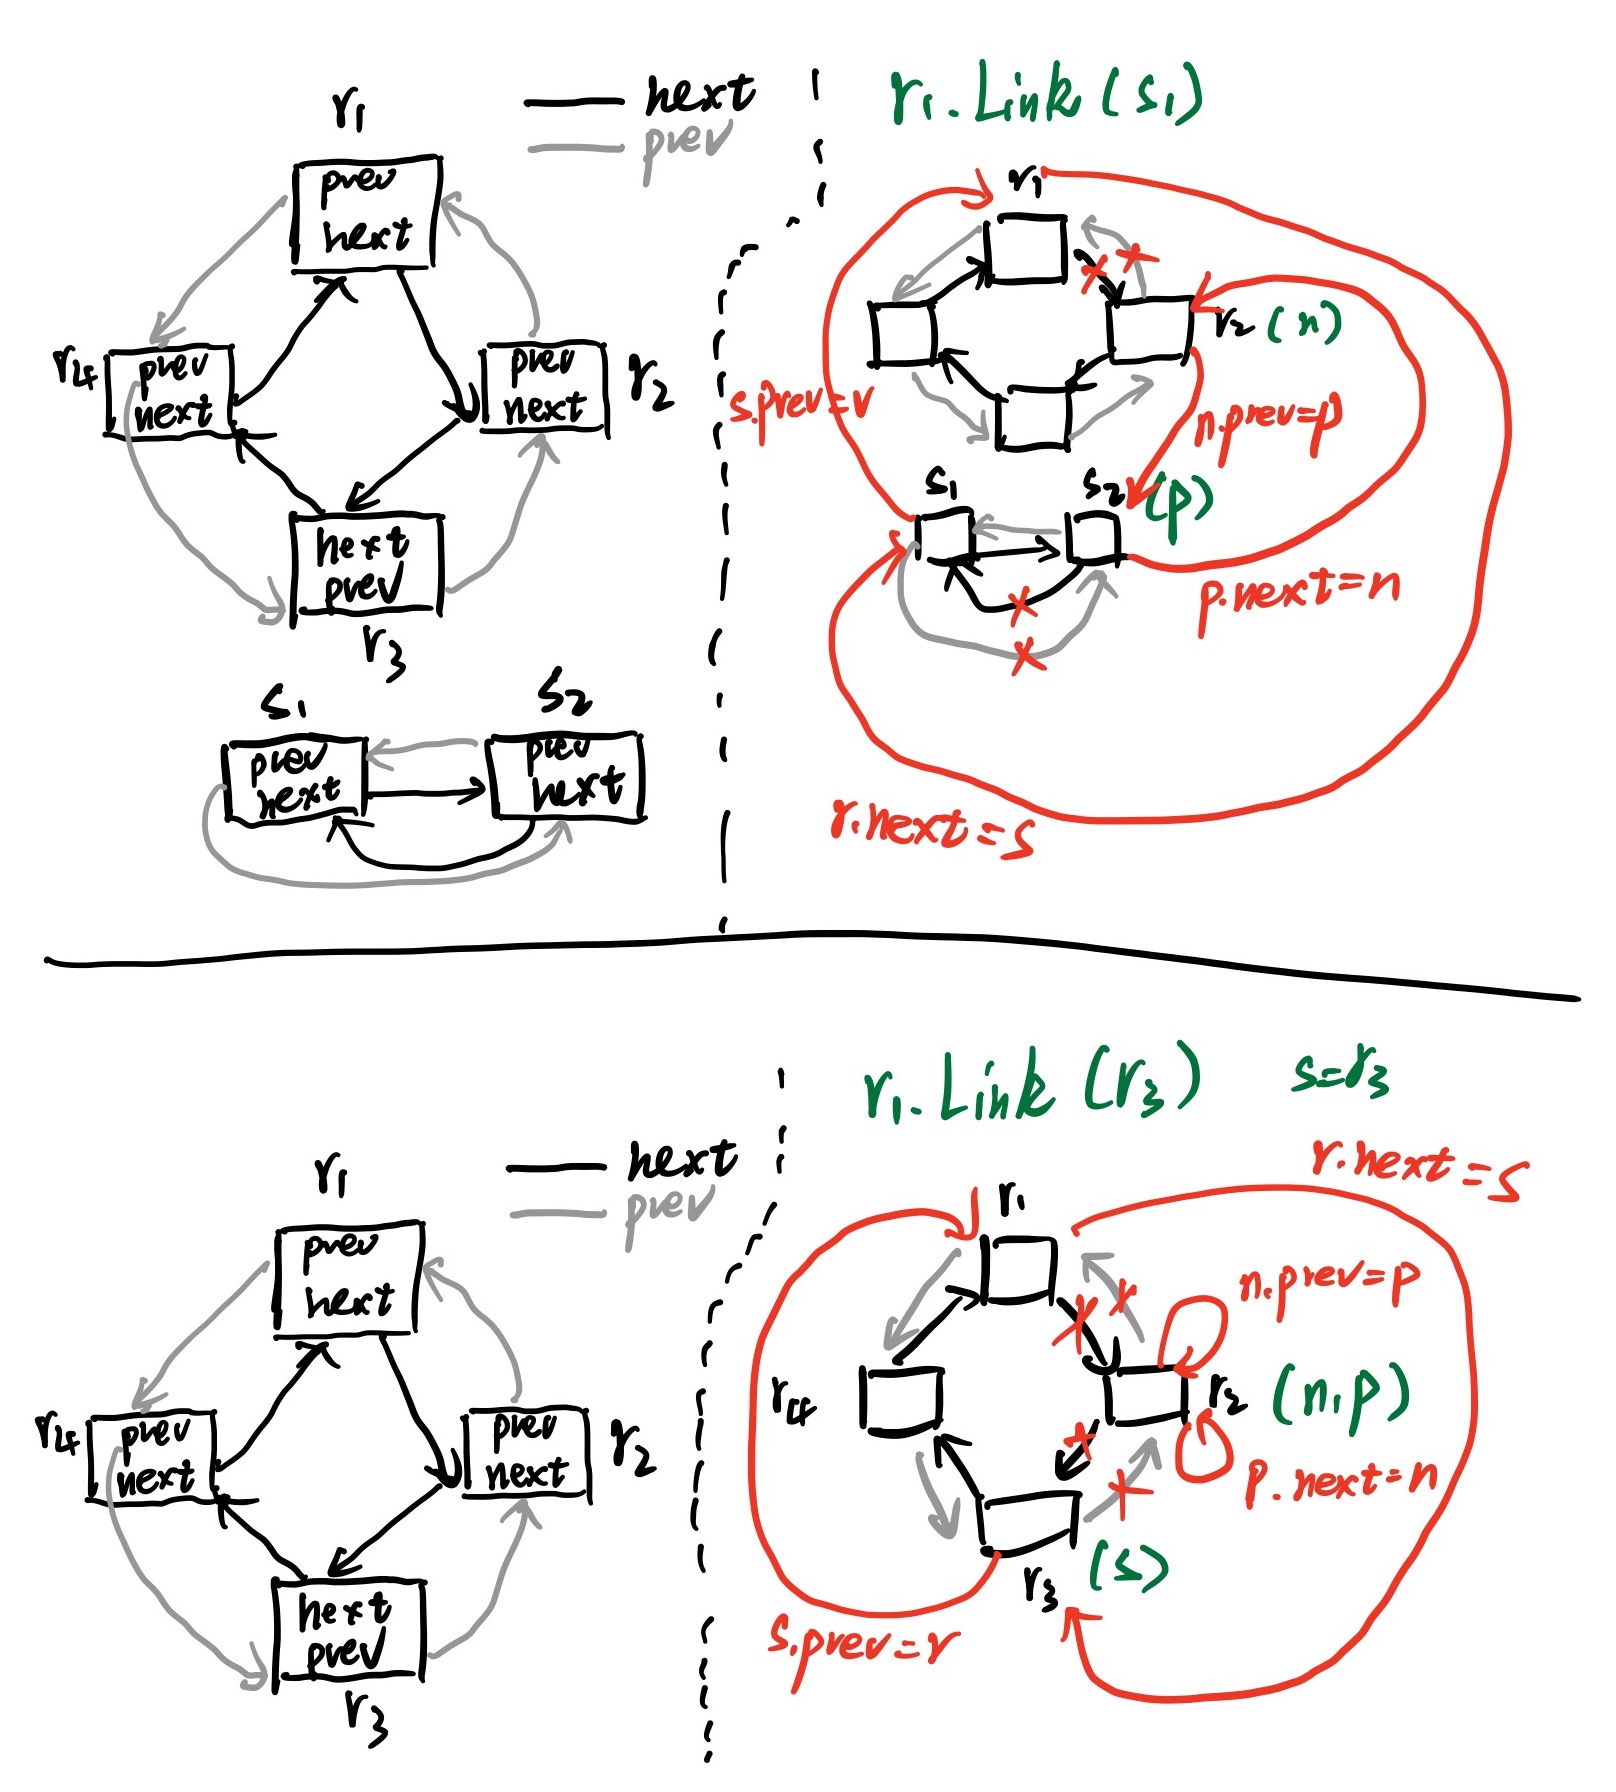 r1
next
prev
prev
next
r4
prev
next
prev
next
r2
next
prev
r3
s1
s2
prev
next
prev
next
r1.Link(s1)
r1
r2 (n)
s.prev=r
n.prev=p
s1
s2
(p)
p.next=n
r.next=s
r1
next
prev
prev
next
r4
prev
next
prev
next
r2
next
prev
r3
r1.Link(r3)
s=r3
r.next=s
r1
n.prev=p
r4
r2 (n,p)
p.next=n
r3 (s)
s.prev=r